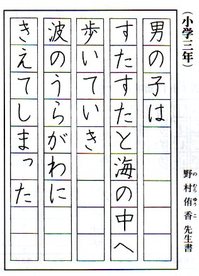 （小学三年）
野村侑香先生書
のむらゆうこ
男の子は
すたすたと海の中へ
歩いていき
波のうらがわに
きえてしまった